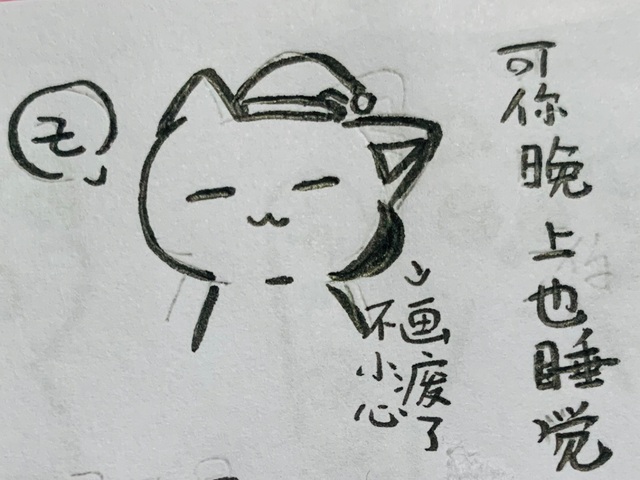 可你晚上也睡觉
不小心
画废了